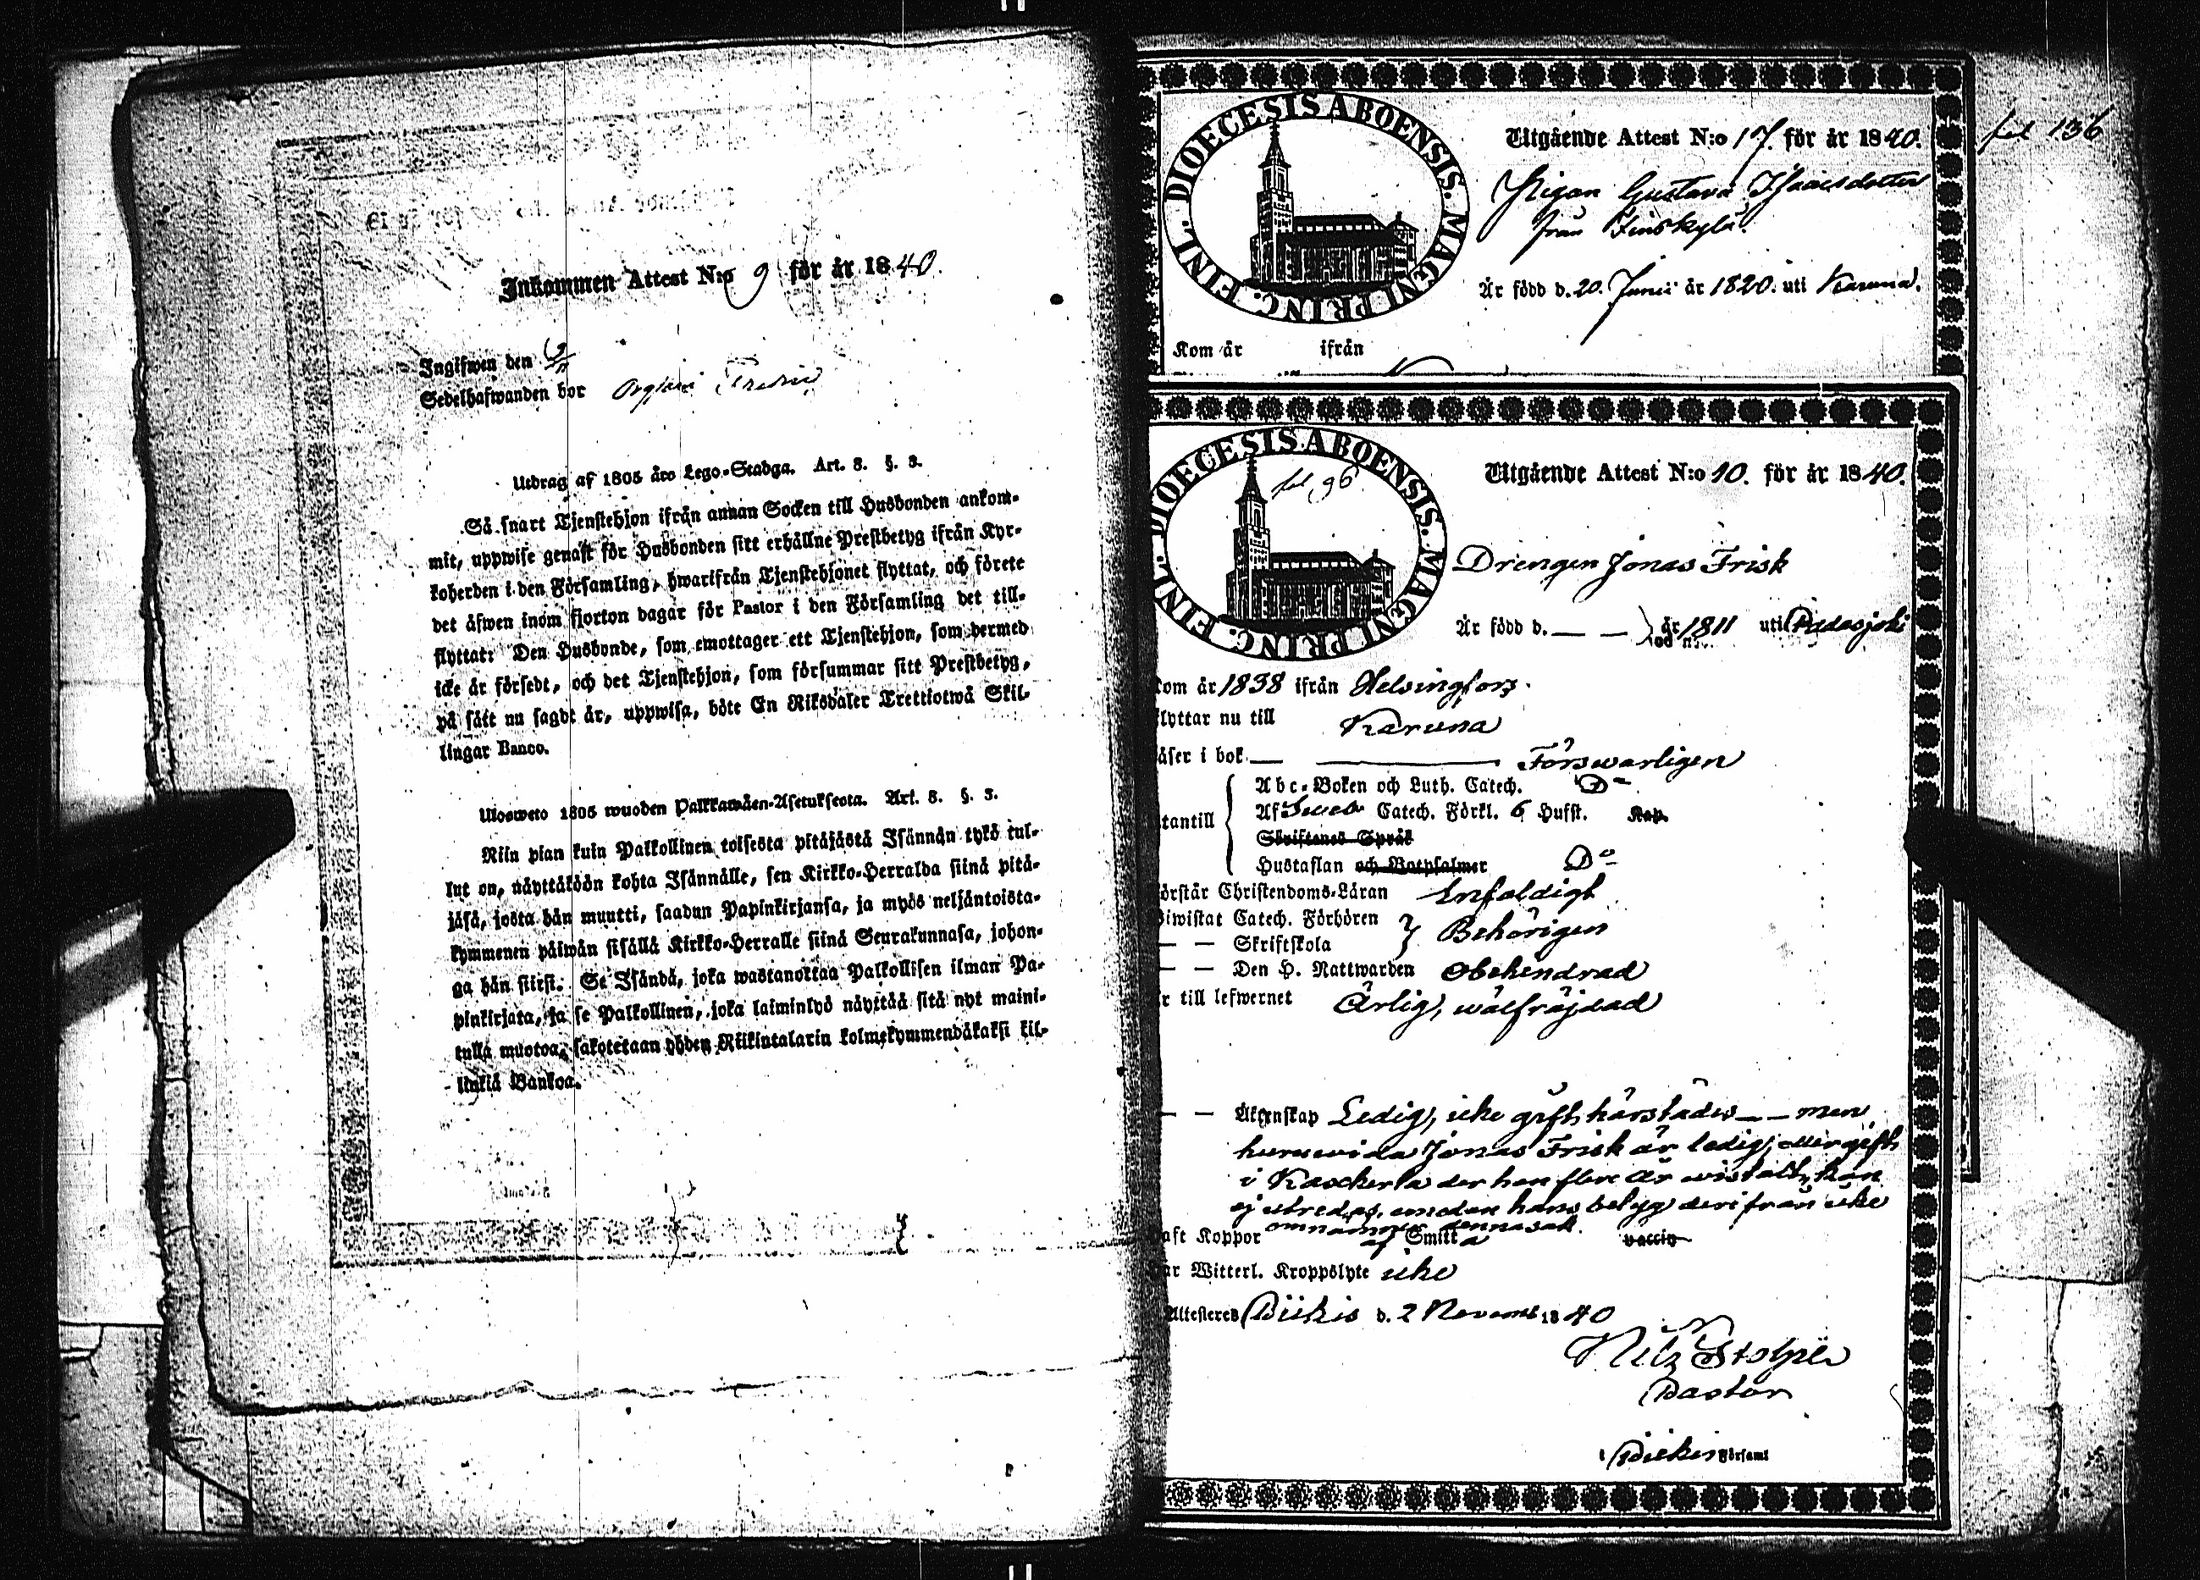 Inkommen Attest N:o 9 för år 1840.
Ingifwen den 9/11
Sedelhafwanden bor
Utdrag af 1805 års Lego-Stadga. Art. 8. §. 3.
Så snart Tjenstehjon ifrån annan Socken till Husbonden ankom-
mit, uppwise genast för Husbonden sitt erhållne Prestbetyg ifrån Kyr-
koherden i den Församling, hwarifrån Tjenstehjonet flyttat, och förete
det äfwen inom fjorton dagar för Pastor i den Församling det till-
flyttat: Den Husbonde, som emottager ett Tjenstehjon, som dermed
icke är försedt, och det Tjenstehjon, som försummar sitt Prestbetyg,
på sätt nu sagdt är, uppwisa, böte En Riksdaler Trettiotwå Skil-
lingar Banco.
Ulosweto 1805 wuoden Palkkawäen-Asetuksesta. Art. 8. §. 3.
Niin pian kuin Palkollinen toisesta pitäjästä Isännän tykö tul-
lut on, näyttäköön kohta Isännälle, sen Kirkko-Herralda siinä pitä-
jäsä, josta hän muutti, saadun Papinkirjansa, ja myös neljäntoista-
kymmenen päiwän sisällä Kirkko-Herralle siinä Seurakunnasa, johon-
ga hän siirsi. Se Isändä, joka wastanottaa Palkollisen ilman Pa-
pinkirjata, ja se Palkollinen, joka laiminlyö näyttää sitä nyt maini-
tulla muotoa, sakotetaan yhden Riikintalarin kolmekymmendäkaksi kil-
linkiä Bankoa.
fol 136
DIOECESIS ABOENSIS. MAGNI PRINC. FINL.
Utgående Attest N:o 17. för år 1840.
Pigan Gustava Isaacsdotter
från Finskylä.
Är född d. 20. Junii år 1820. uti Karuna.
Kom år ifrån
DIOECESIS ABOENSIS. MAGNI PRINC. FINL.
fol 96
Utgående Attest N:o 10. för år 1840.
Drengen Jonas Frisk
Är född d. — — år 1811 uti Padasjoki
om år 1838 ifrån Helsingfors.
lyttar nu till Karuna
äser i bok — Förswarligen
Abc-Boken och Luth. Catech. Do
utantill Af Sveb. Catech. Förkl. 6 Hufst. Kap.
Skriftenes Språk
Hustaflan och Botpsalmer Do
örstår Christendoms-Läran Enfaldigt
iwistat Catech. Förhören
— — Skriftskola Behörigen
— — Den H. Nattwarden obehindrad
r till lefwernet Ärlig, wälfräjdad
— — Äktenskap Ledig, icke gift härstädes — — men
huruvida Jonas Frisk är ledig, eller gift
i Kaskerta der han flere år vistats, kan
ej utredas, emedan hans betyg derifrån icke
omnämner denna sak.
aft Koppor af Smitta vaccin
ar Witterl. Kroppslyte icke
Attesteres Piikis d. 2 Novemb 1840
Nils Stolpe
Pastor
i Piikis Församl